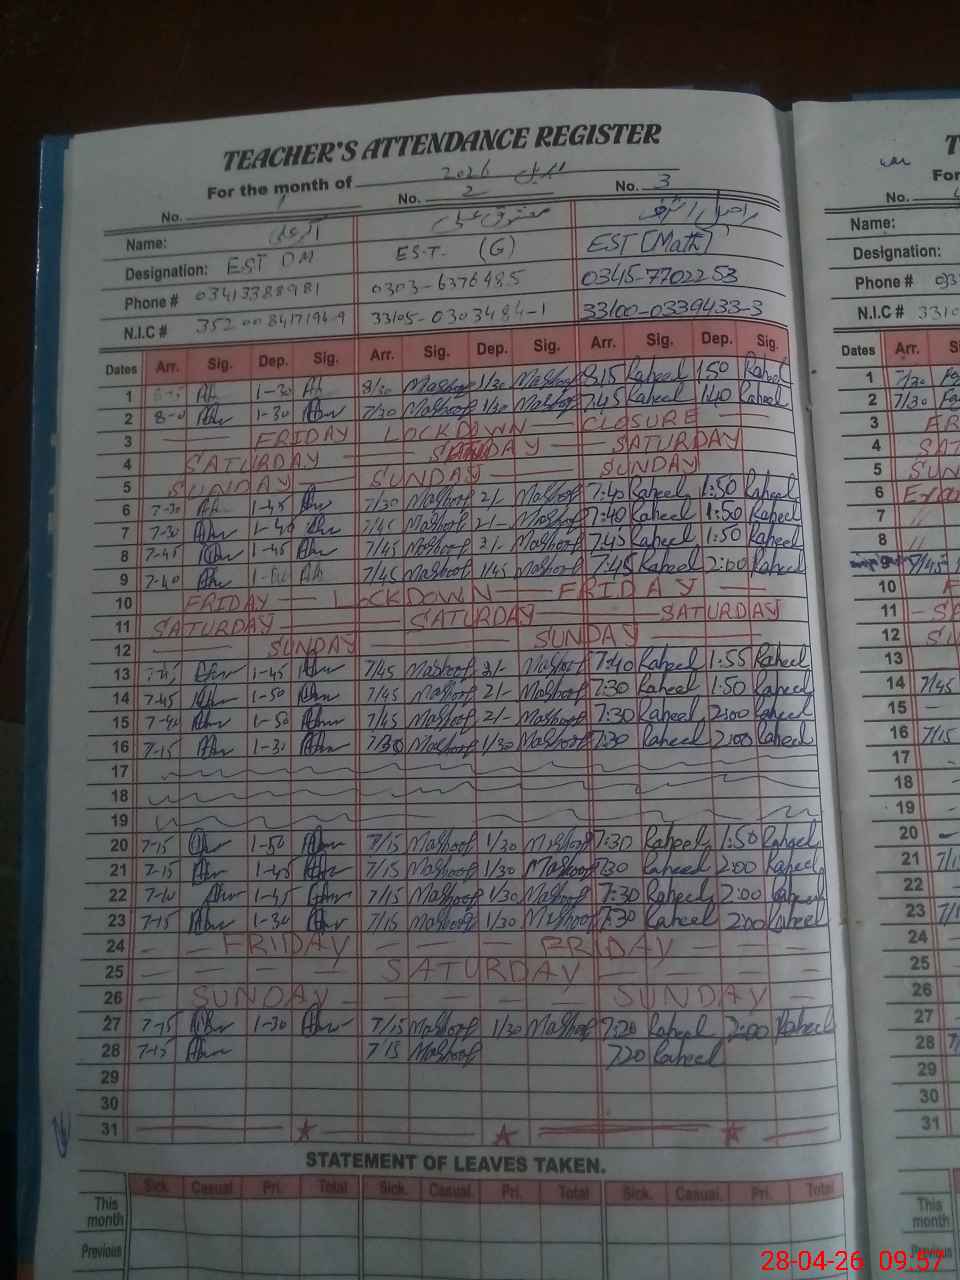 TEACHER'S ATTENDANCE REGISTER
For the month of 2026 اپریل
No. 1 No. 2 No. 3
Name: اکبر علی معشوق علی راحیل اشرف
Designation: EST DM ES.T. (G) EST (Math)
Phone # 03413388981 0303-6376485 0345-7702253
N.I.C # 33105-0303484-1 33100-0339433-3
Dates Arr. Sig. Dep. Sig. Arr. Sig. Dep. Sig. Arr. Sig. Dep. Sig.
1 1-30 8/30 Mashoof 1/30 Mashoof 8:15 Raheel 1:50 Raheel
2 8-0 1-30 7/30 Mashoof 1/30 Mashoof 7:45 Raheel 1:40 Raheel
3 FRIDAY LOCKDOWN CLOSURE
4 SATURDAY SATURDAY SATURDAY
5 SUNDAY SUNDAY SUNDAY
6 7-30 1-45 7/30 Mashoof 2/- Mashoof 7:40 Raheel 1:50 Raheel
7 7-30 1-40 7/45 Mashoof 2/- Mashoof 7:40 Raheel 1:50 Raheel
8 7-45 1-45 7/45 Mashoof 2/- Mashoof 7:45 Raheel 1:50 Raheel
9 7-40 7/45 Mashoof 1/45 Mashoof 7:45 Raheel 2:00 Raheel
10 FRIDAY LOCKDOWN FRIDAY
11 SATURDAY SATURDAY SATURDAY
12 SUNDAY SUNDAY
13 1-45 7/45 Mashoof 2/- Mashoof 7:40 Raheel 1:55 Raheel
14 7-45 1-50 7/45 Mashoof 2/- Mashoof 7:30 Raheel 1:50 Raheel
15 7-40 1-50 7/45 Mashoof 2/- Mashoof 7:30 Raheel 2:00 Raheel
16 7-15 1-30 7/30 Mashoof 1/30 Mashoof 7:30 Raheel 2:00 Raheel
17
18
19
20 7-15 1-50 7/15 Mashoof 1/30 Mashoof 7:30 Raheel 1:50 Raheel
21 7-15 1-45 7/15 Mashoof 1/30 Mashoof 7:30 Raheel 2:00 Raheel
22 7-10 1-45 7/15 Mashoof 1/30 Mashoof 7:30 Raheel 2:00 Raheel
23 7-15 1-30 7/15 Mashoof 1/30 Mashoof 7:30 Raheel 2:00 Raheel
24 FRIDAY FRIDAY
25 SATURDAY
26 SUNDAY SUNDAY
27 7-15 1-30 7/15 Mashoof 1/30 Mashoof 7:20 Raheel 2:00 Raheel
28 7-15 7/15 Mashoof 7:20 Raheel
29
30
31
STATEMENT OF LEAVES TAKEN.
Sick. Casual. Pri. Total Sick. Casual. Pri. Total Sick. Casual. Pri. Total
This month
Previous
Name:
Designation:
Phone #
N.I.C #
Dates Arr.
1 7/30
2 7/30
3
4
5
6
7
8
9 7/45
10
11
12
13
14 7/45
15
16 7/15
17
18
19
20
21
22
23
24
25
26
27
28
29
30
31
This month
Previous
28-04-26 09:57